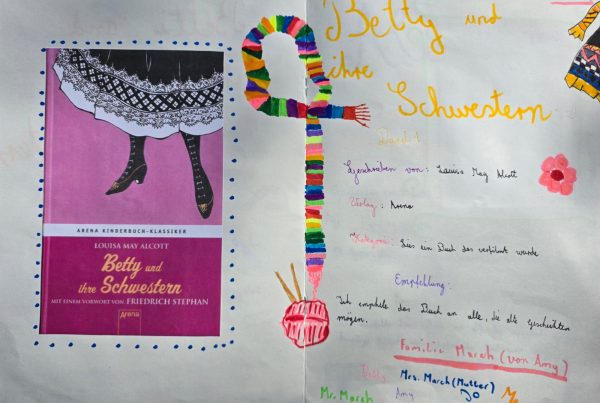 ARENA KINDERBUCH-KLASSIKER
LOUISA MAY ALCOTT
Betty und
ihre Schwestern
MIT EINEM VORWORT VON FRIEDRICH STEPHAN
Arena
Betty und
ihre
Schwestern
Band 1
Geschrieben von: Louisa May Alcott
Verlag: Arena
Kategorie: Lies ein Buch das verfilmt wurde
Empfehlung:
Ich empfehle das Buch an alle, die alte Geschichten
mögen.
Familie March (von Amy)
Betty Mrs. March (Mutter)
Mr. March Amy Jo